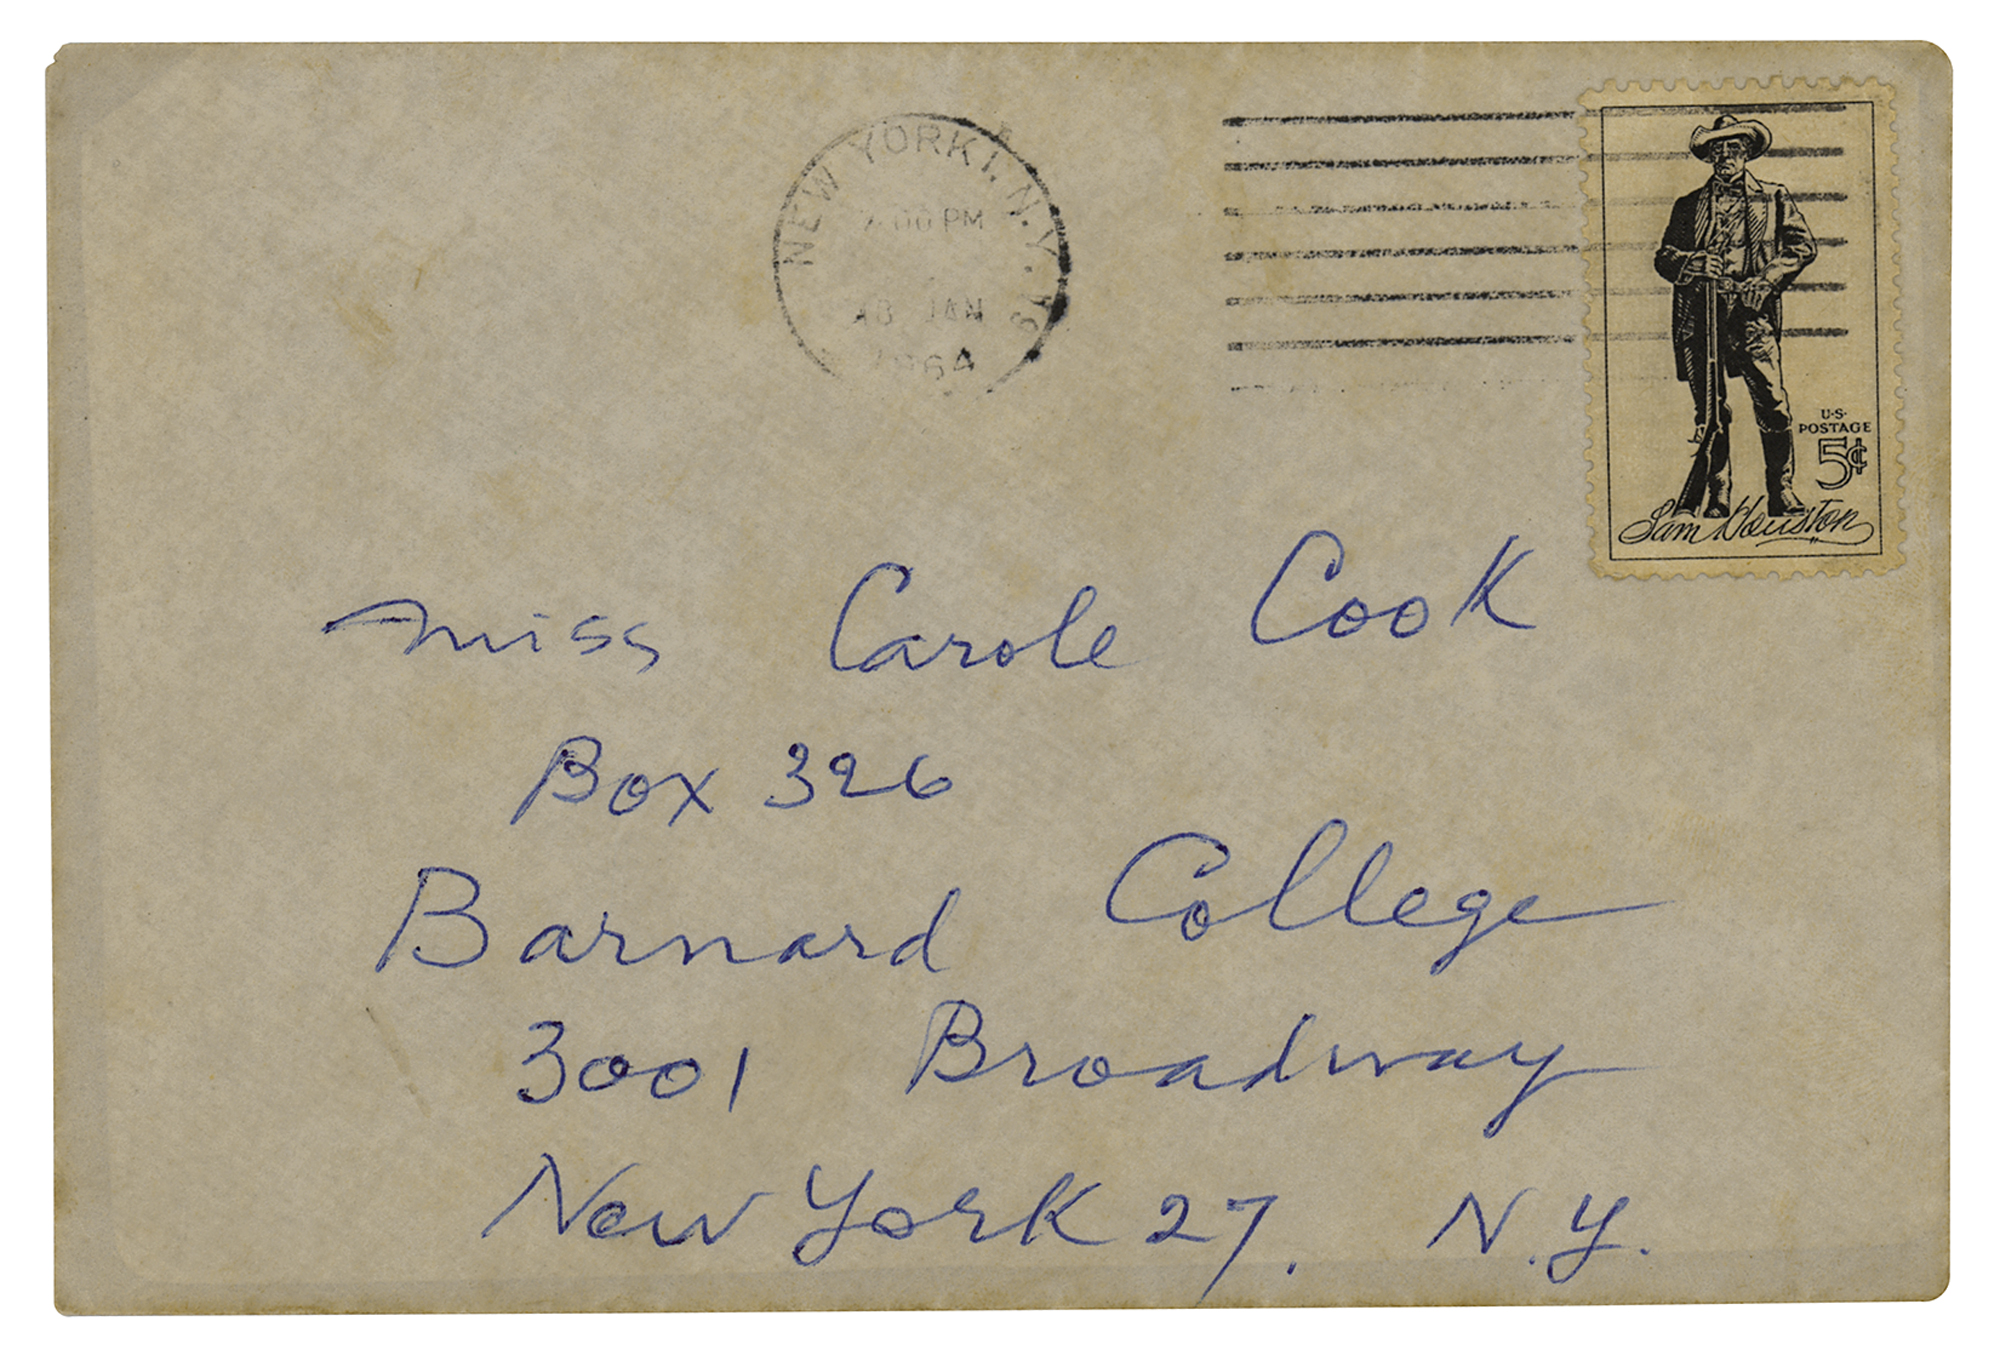 NEW YORK 1, N.Y.
00 PM
JAN
1964
U.S.
POSTAGE
5¢
Sam Houston
Miss Carole Cook
Box 326
Barnard College
3001 Broadway
New York 27. N.Y.